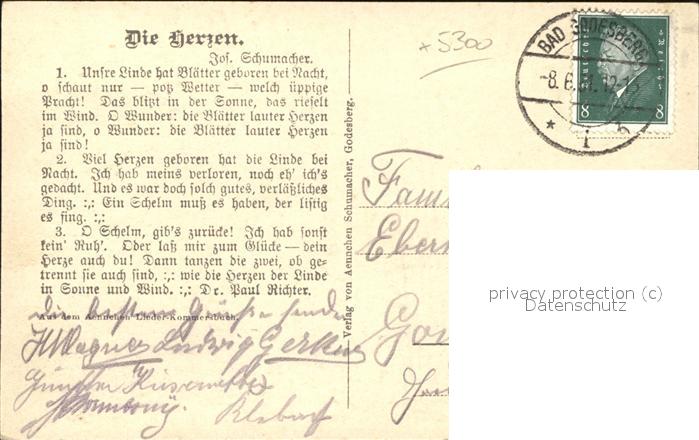 Die Herzen.
Jos. Schumacher.
1. Unsre Linde hat Blätter geboren bei Nacht,
o schaut nur — potz Wetter — welch üppige
Pracht! Das blitzt in der Sonne, das rieselt
im Wind. O Wunder: die Blätter lauter Herzen
ja sind, o Wunder: die Blätter lauter Herzen
ja sind!
2. Viel Herzen geboren hat die Linde bei
Nacht. Ich hab meins verloren, noch eh' ich's
gedacht. Und es war doch solch gutes, verläßliches
Ding. :,: Ein Schelm muß es haben, der listig
es fing. :,:
3. O Schelm, gib's zurücke! Ich hab sonst
kein' Ruh'. Oder laß mir zum Glücke — dein
Herze auch du! Dann tanzen die zwei, ob ge-
trennt sie auch sind, :,: wie die Herzen der Linde
in Sonne und Wind. :,: Dr. Paul Richter.
Aus dem Aennchen Lieder-Kommersbuch.
die besten Grüße senden
Ludwig
Verlag von Aennchen Schumacher, Godesberg.
5300
BAD GODESBERG
-8.6.31.12-13
* 1 b
Deutsches Reich
8 8
Fam
Eber
Go
privacy protection (c)
Datenschutz